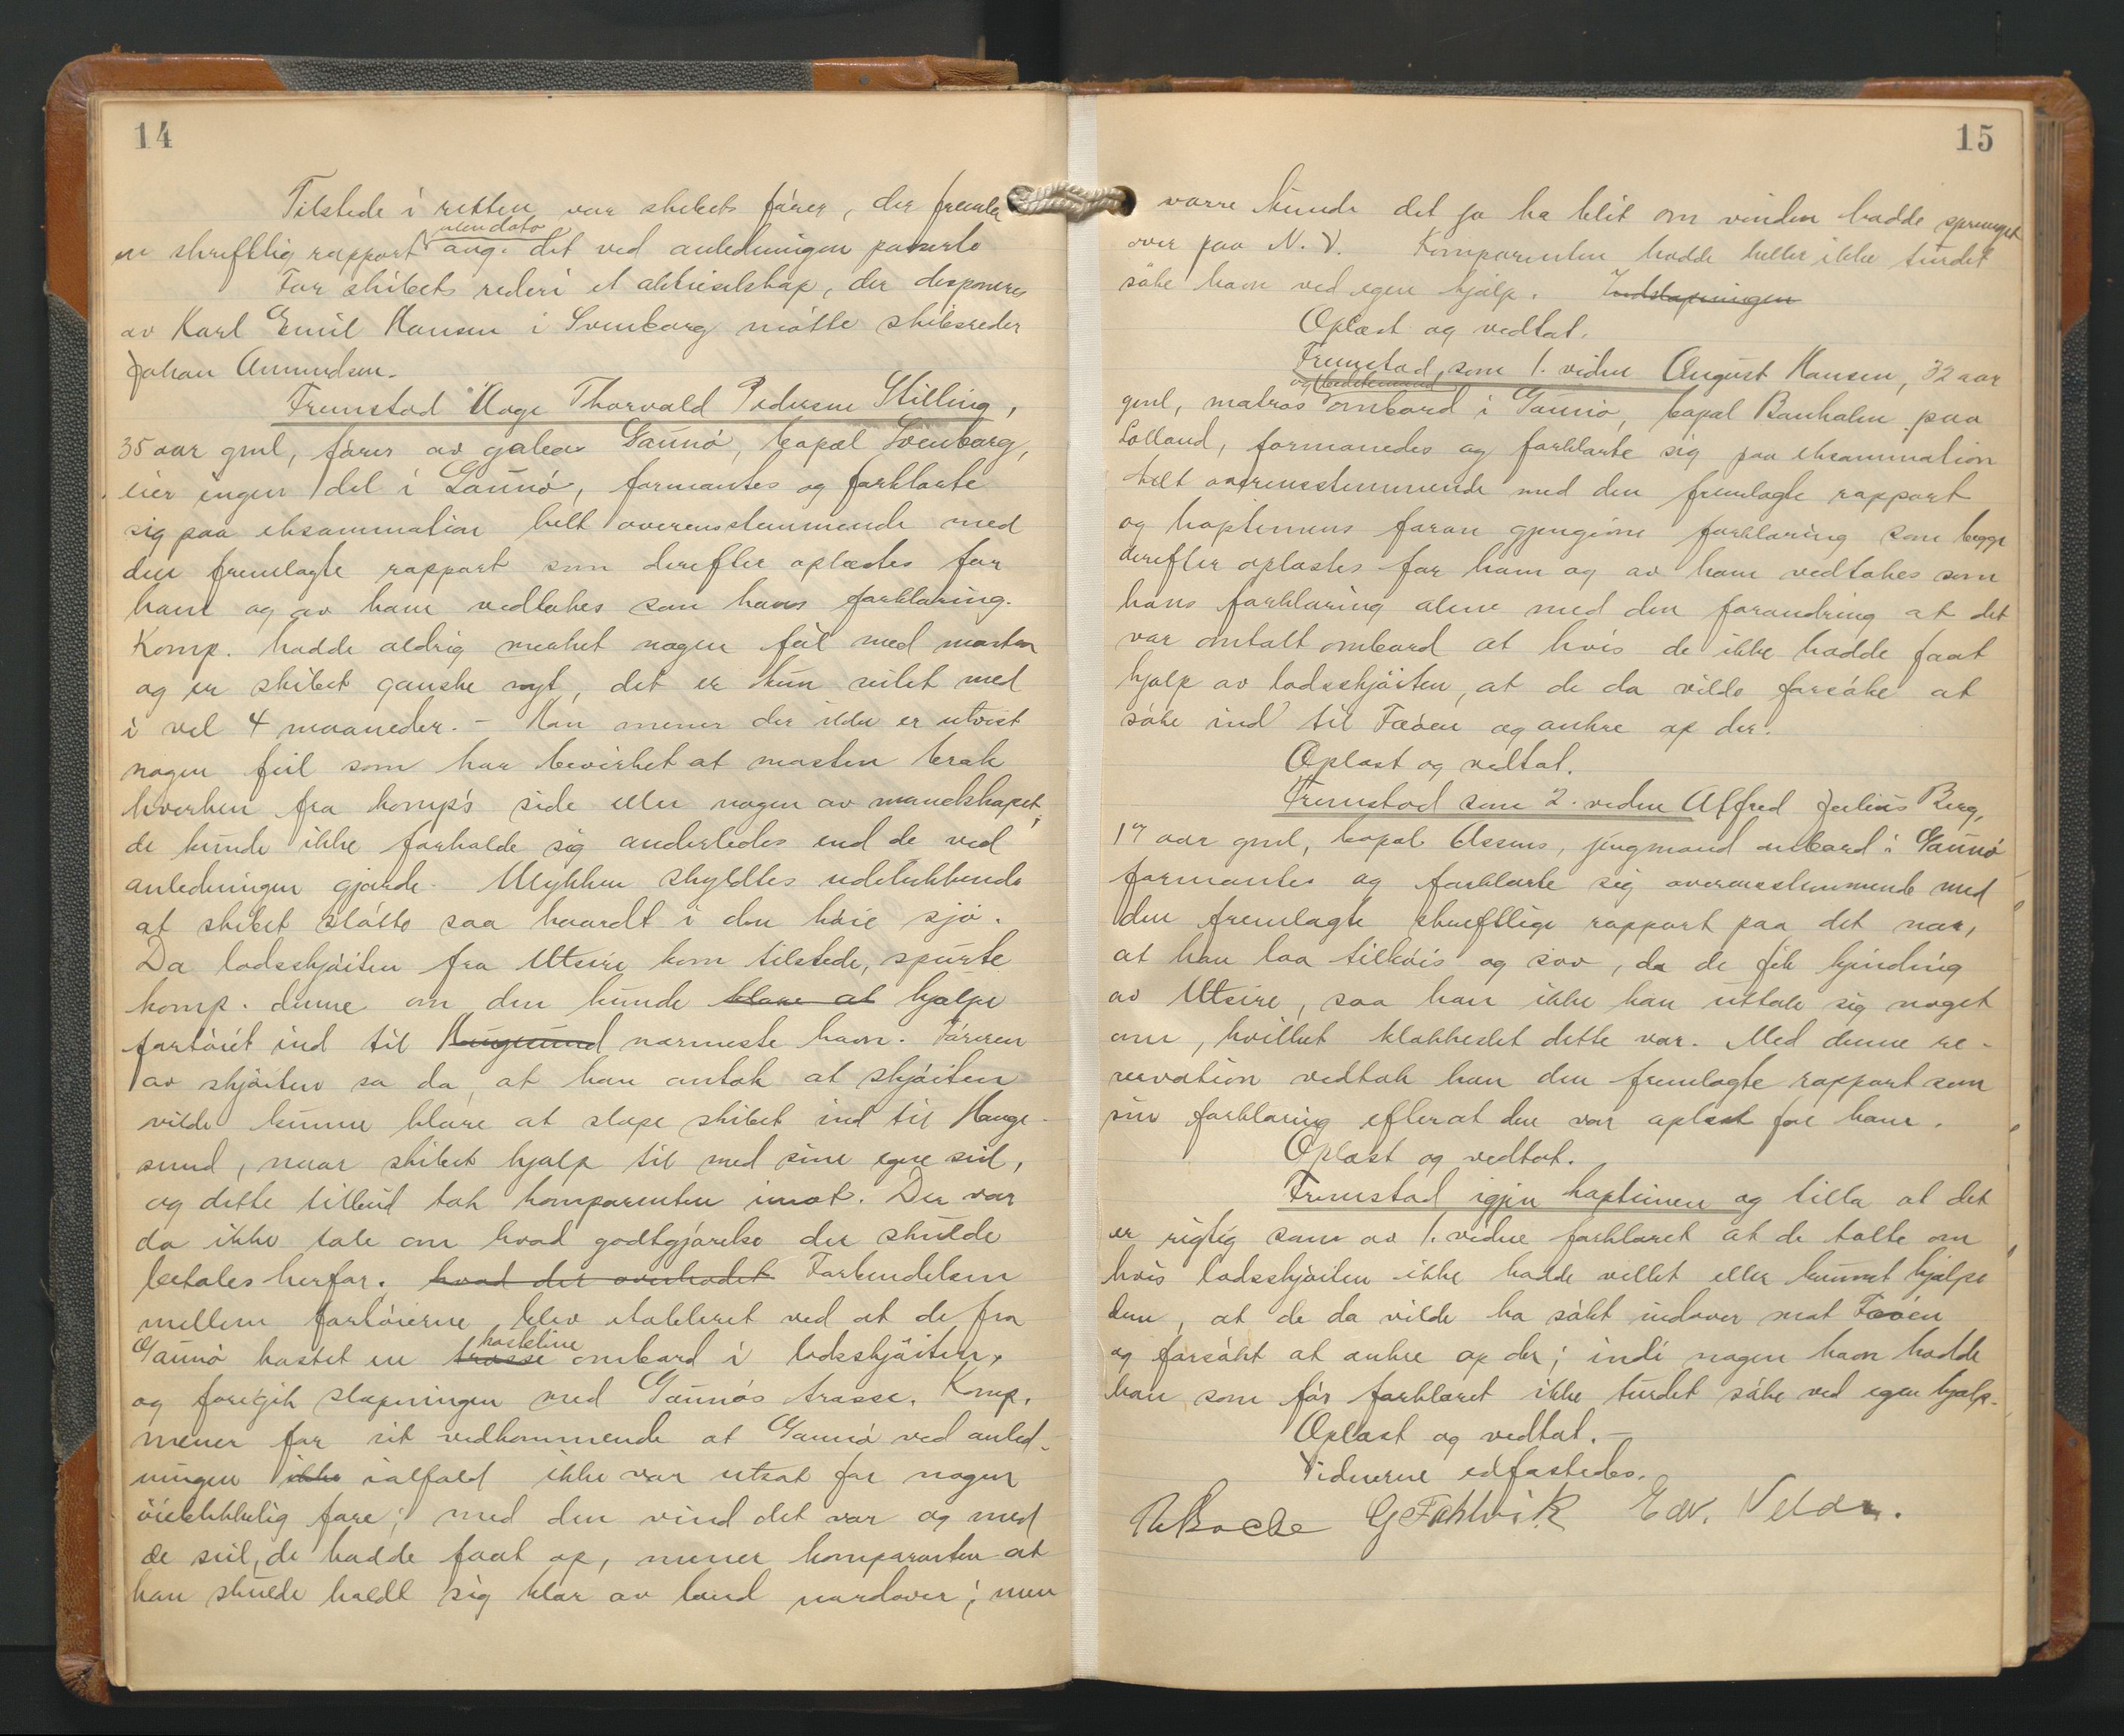 14
Tilstede i retten var skibets fører, der fremla
en skriftlig rapport uten dato ang. det ved anledningen passerte
For skibets rederi et aktieselskap, der disponeres
av Karl Emil Hansen i Svenborg møtte skibsreder
Johan Amundsen.
Fremstod Aage Thorvald Pedersen Stilling,
35 aar gml, fører av galeas Gaunø, bopæl Svenborg,
eier ingen del i Gaunø, formantes og forklarte
sig paa eksammination helt overensstemmende med
den fremlagte rapport som derefter oplæstes for
ham og av ham vedtokes som hans forklaring.
Komp. hadde aldrig merket nogen feil med masten
og er skibet ganske nyt, det er kun seilet med
i vel 4 maaneder. - Han mener der ikke er utvist
nogen feil som har bevirket at masten brak
hverken fra komp's side eller nogen av mandskapet,
de kunde ikke forholde sig anderledes end de ved
anledningen gjorde. Ulykken skyldtes udelukkende
at skibet støtte saa haardt i den høie sjø.
Da lodsskjøiten fra Utsire kom tilstede, spurte
komp. denne om den kunde klare at hjælpe
fartøiet ind til Haugesund nærmeste havn. Føreren
av skjøiten sa da, at han antok at skjøiten
vilde kunne klare at slæpe skibet ind til Hauge-
sund, naar skibet hjalp til med sine egne seil,
og dette tilbud tok komparenten imot. Der var
da ikke tale om hvad godtgjørelse der skulde
betales herfor. hvad der overhodet Forbindelsen
mellem fartøierne blev etableret ved at de fra
Gaunø kastet en trosse kasteline ombord i lodsskjøiten,
og foregik slæpningen med Gaunøs trosse. Komp.
mener for sit vedkommende at Gaunø ved anled-
ningen ikke ialfald ikke var utsat for nogen
øieblikkelig fare; med den vind det var og med
de seil, de hadde faat op, mener komparenten at
han skulde holdt sig klar av land nordover; men
15
værre kunde det jo ha blit om vinden hadde sprunget
over paa N. V. Komparenten hadde heller ikke turdet
søke havn ved egen hjælp. Indslæpningen
Oplæst og vedtat.
Fremstod som 1. vidne August Hansen, 32 aar
gml, matros og bedstemand ombord i Gaunø, bopæl Banholm paa
Lolland, formanedes og forklarte sig paa eksammination
helt overensstemmende med den fremlagte rapport
og kapteinens foran gjengivne forklaring som begge
derefter oplæstes for ham og av ham vedtokes som
hans forklaring alene med den forandring at det
var omtalt ombord at hvis de ikke hadde faat
hjælp av lodsskjøiten, at de da vilde forsøke at
søke ind til Fæøen og ankre op der.
Oplæst og vedtat.
Fremstod som 2. vidne Alfred Julius Berg,
17 aar gml, bopæl Assens, jungmand ombord i Gaunø
formantes og forklarte sig overensstemmende med
den fremlagte skriftlige rapport paa det nær,
at han laa tilkøis og sov, da de fik kjending
av Utsire, saa han ikke kan uttale sig noget
om, hvilket klokkeslet dette var. Med denne re-
servation vedtok han den fremlagte rapport som
sin forklaring efterat den var oplæst for ham.
Oplæst og vedtat.
Fremstod igjen kapteinen og tilla at det
er rigtig som av 1. vidne forklaret at de talte om
hvis lodsskjøiten ikke hadde villet eller kunnet hjælpe
dem, at de da vilde ha søkt indover mot Fæøen
og forsøkt at ankre op der; indi nogen havn hadde
han som før forklaret ikke turdet søke ved egen hjælp.
Oplæst og vedtat. -
Vidnerne edfæstedes.
Edv.